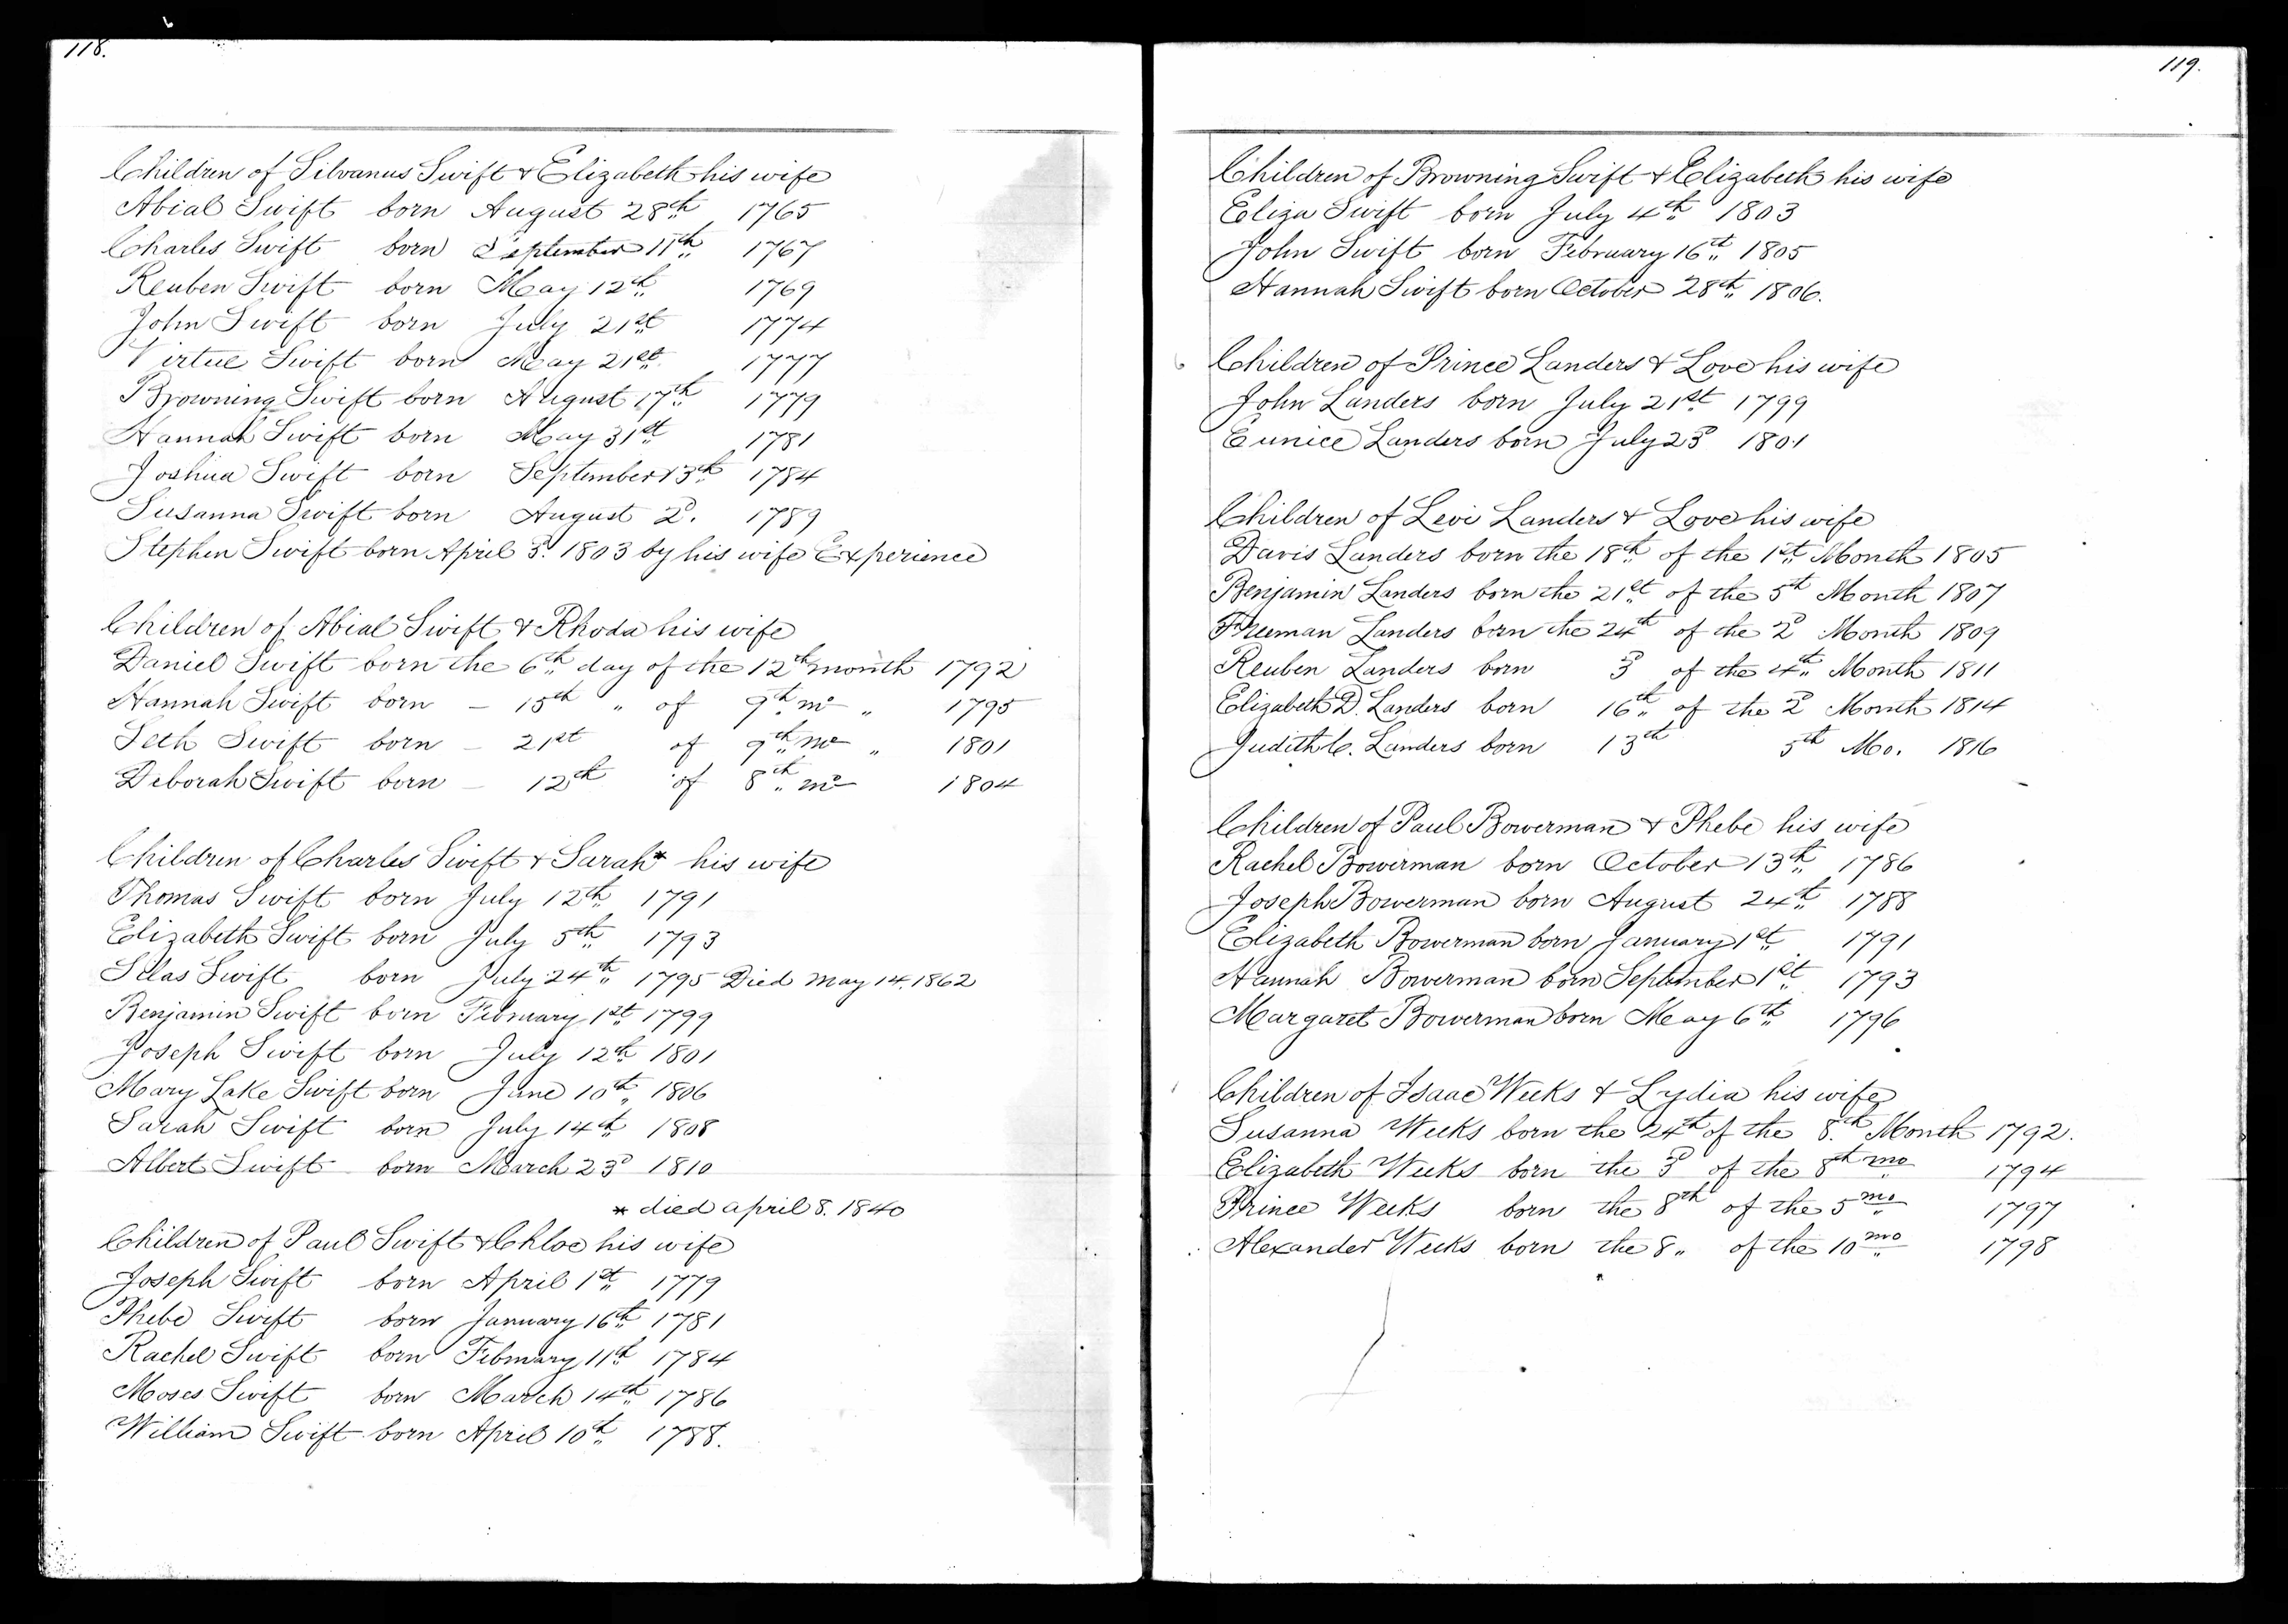 118.
Children of Silvanus Swift & Elizabeth his wife
Abial Swift born August 28th 1765
Charles Swift born September 11th 1767
Reuben Swift born May 12th 1769
John Swift born July 21st 1774
Virtue Swift born May 21st 1777
Browning Swift born August 17th 1779
Hannah Swift born May 31st 1781
Joshua Swift born September 13th 1784
Susanna Swift born August 2d. 1789
Stephen Swift born April 3d. 1803 by his wife Experience
Children of Abial Swift & Rhoda his wife
Daniel Swift born the 6th day of the 12th month 1792
Hannah Swift born — 15th " of 9th mo " 1795
Seth Swift born — 21st of 9th mo " 1801
Deborah Swift born — 12th of 8th mo 1804
Children of Charles Swift & Sarah* his wife
Thomas Swift born July 12th 1791
Elizabeth Swift born July 5th 1793
Silas Swift born July 24th 1795 Died May 14. 1862
Benjamin Swift born February 1st 1799
Joseph Swift born July 12th 1801
Mary Lake Swift born June 10th 1806
Sarah Swift born July 14th 1808
Albert Swift born March 23d 1810
* died april 8. 1840
Children of Paul Swift & Chloe his wife
Joseph Swift born April 1st 1779
Phebe Swift born January 16th 1781
Rachel Swift born February 11th 1784
Moses Swift born March 14th 1786
William Swift born April 10th 1788.
119.
Children of Browning Swift & Elizabeth his wife
Eliza Swift born July 4th 1803
John Swift born February 16th 1805
Hannah Swift born October 28th 1806.
Children of Prince Landers & Love his wife
John Landers born July 21st 1799
Eunice Landers born July 23d 1801
Children of Levi Landers & Love his wife
Davis Landers born the 18th of the 1st Month 1805
Benjamin Landers born the 21st of the 5th Month 1807
Freeman Landers born the 24th of the 2d Month 1809
Reuben Landers born 3d of the 4th Month 1811
Elizabeth D. Landers born 16th of the 2d Month 1814
Judith C. Landers born 13th 5th Mo. 1816
Children of Paul Bowerman & Phebe his wife
Rachel Bowerman born October 13th 1786
Joseph Bowerman born August 24th 1788
Elizabeth Bowerman born January 1st 1791
Hannah Bowerman born September 1st 1793
Margaret Bowerman born May 6th 1796
Children of Isaac Weeks & Lydia his wife
Susanna Weeks born the 24th of the 8th Month 1792.
Elizabeth Weeks born the 3d of the 8th mo 1794
Prince Weeks born the 8th of the 5 mo 1797
Alexander Weeks born the 8" of the 10 mo 1798